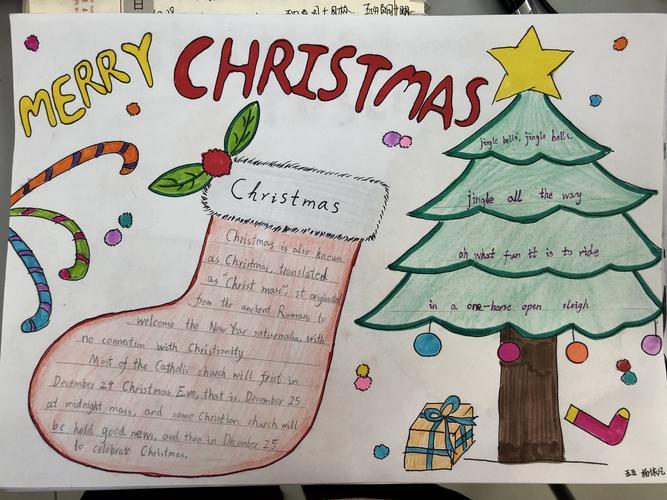 MERRY CHRISTMAS
Christmas
Christmas is also known
as Christmas, translated
as "Christ mass", it originated
from the ancient Romans to
welcome the New Year saturnalia, with
no connection with Christianity
Most of the Catholic church will frist in
December 24 Christmas Eve, that is, December 25
at midnight mass, and some Christian church will
be hold good news, and then in December 25
to celebrate Christmas.
jingle bells, jingle bells.
jingle all the way
oh what fun it is to ride
in a one-horse open sleigh